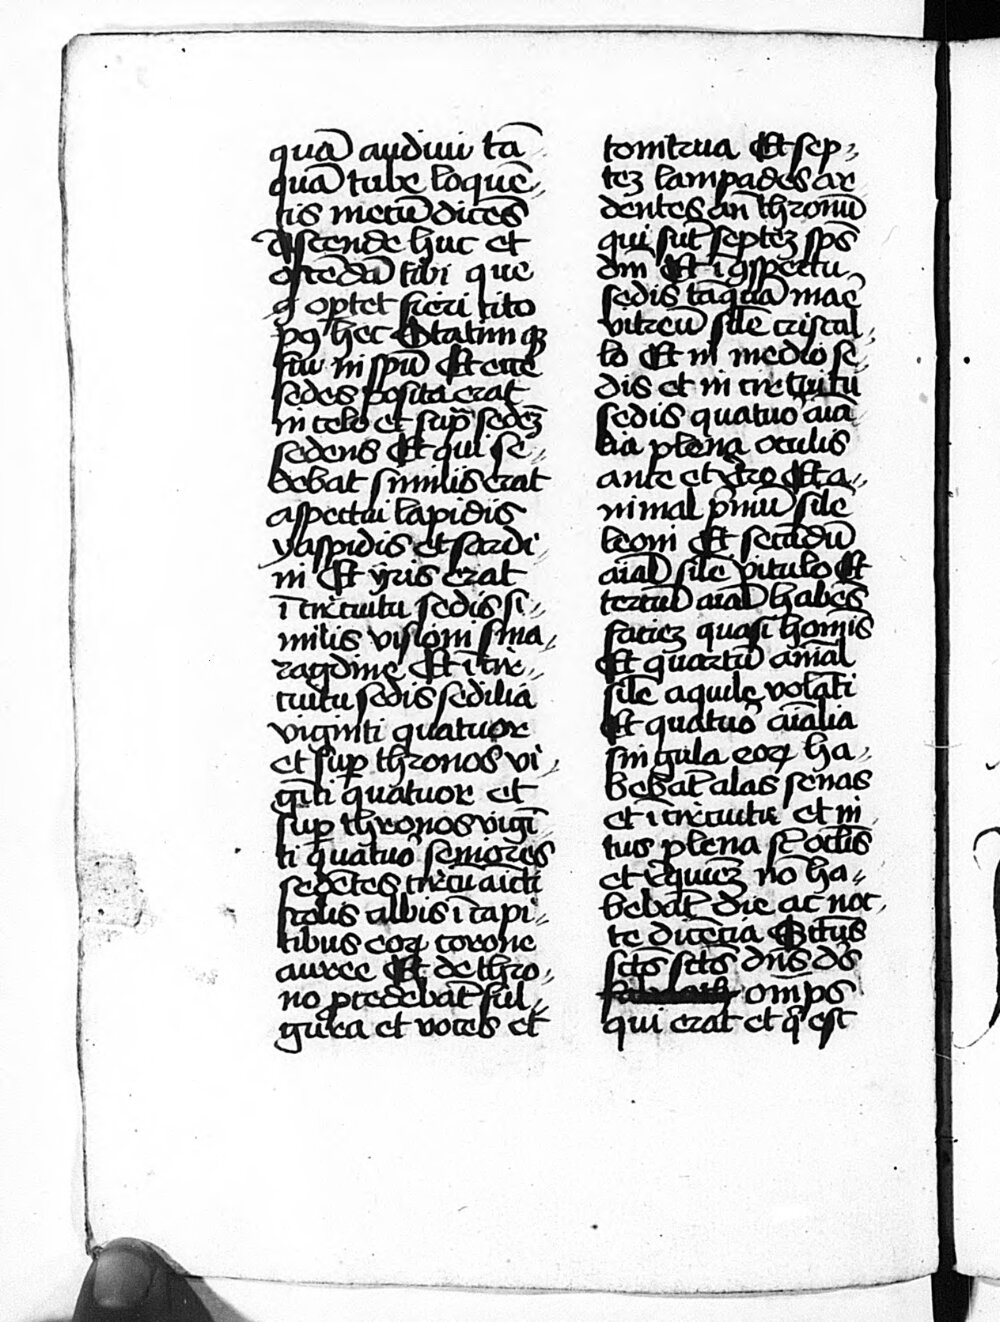 quā audiui tā
quā tube loquē
tis mecū dicēs
ascende huc et
ostēdā tibi que
ꝯ optet fieri cito
pꝰ hec Statimqꝫ
fui in spū Et ecce
sedes posita erat
in celo et suꝑ sedeꝫ
sedens Et qui se
debat similis erat
aspectui lapidis
yaspidis et sardi
ni Et yris erat
ī circuitu sedis si
milis visioni sma
ragdine Et ī cir
cuitu sedis sedilia
viginti quatuor
et suꝑ thronos vi
gīti quatuor et
suꝑ thronos vigī
ti quatuō seniores
sedētes circū aicti
stolis albis ī capi
tibus eoꝝ corone
auree Et de thro
no ꝓcedebāt ful
gura et voces et
tonitrua Et sep
teꝫ lampades ar
dentes an̄ thronū
qui sūt septeꝫ sp̄s
dei Et ī ꝯspectu
sedis tāquā mare
vitreū sil̄e cristal
lo Et in medio se
dis et in circuitu
sedis quatuō aīa
lia plena oculis
ante et retro Et a
nimal p̄mū sil̄e
leoni Et secūdū
aīal sil̄e vitulo Et
tertiū aīal habēs
facieꝫ quasi homīs
Et quartū anīal
sil̄e aquile volāti
Et quatuō aīalia
singula eoꝝ ha
bebāt alas senas
et ī circuitu et in
tus plena st̄ oclīs
et requieꝫ nō ha
bebāt die ac noc
te dicētia Sctūs
sctūs sctūs dn̄s dēs
om̄ps
qui erat et q̄ est